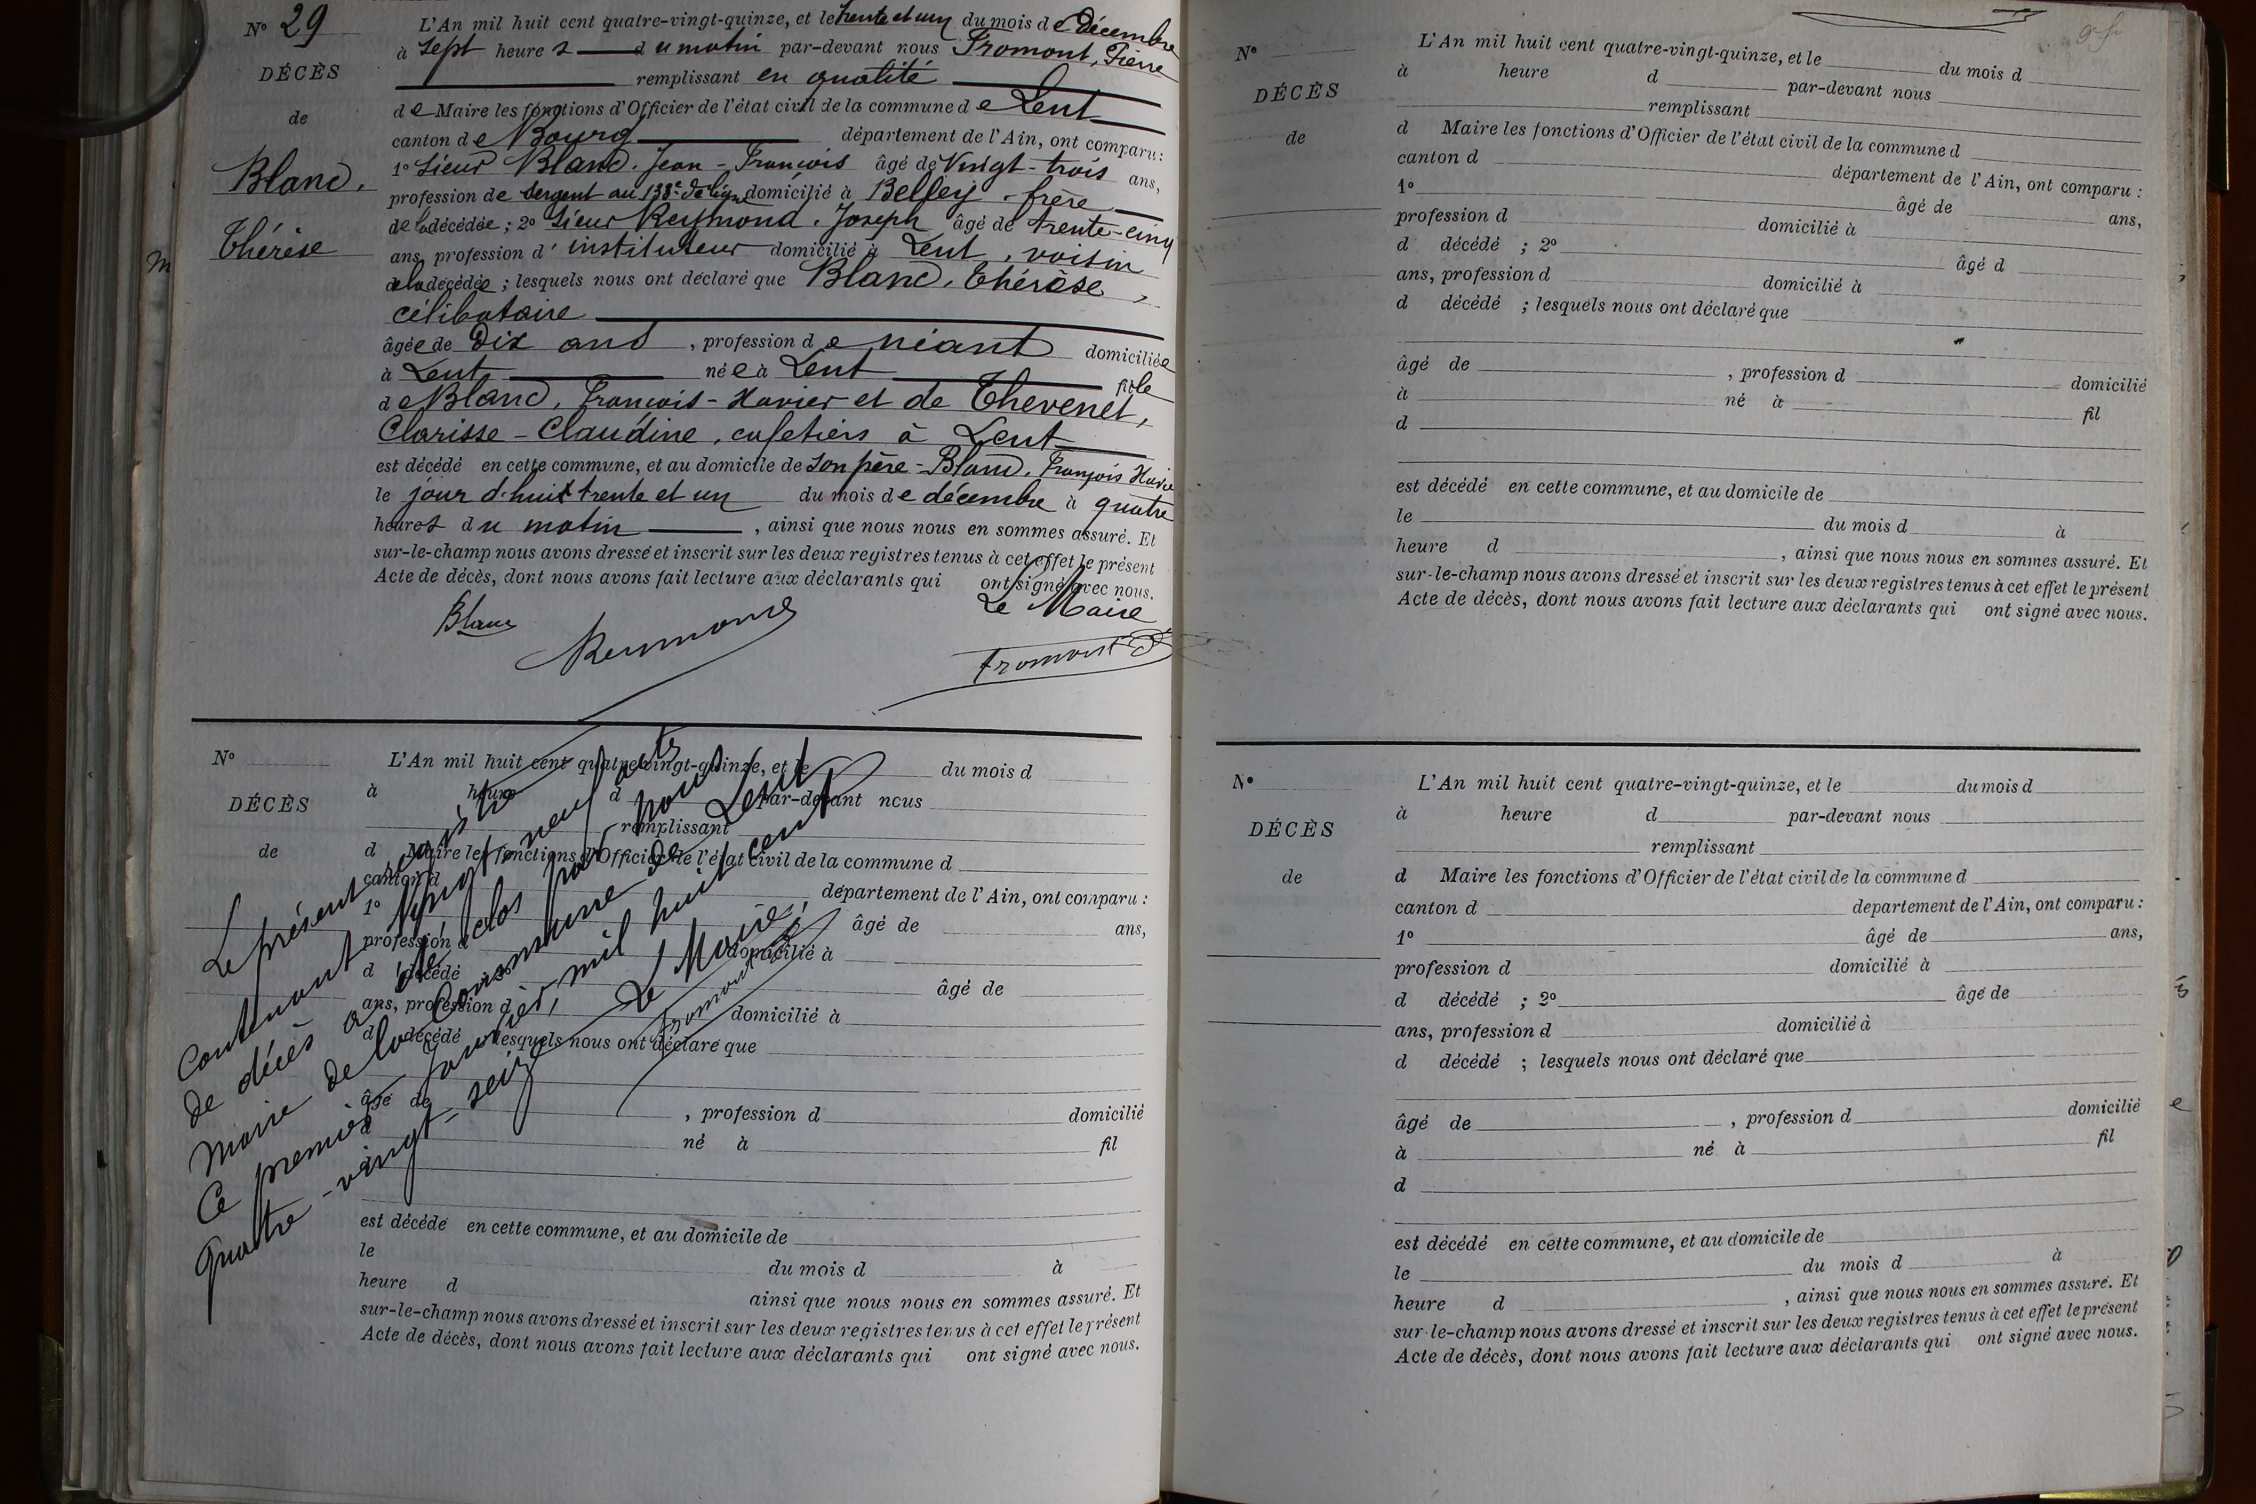 Nº 29
DÉCÈS
de
Blanc,
Thérèse
L'An mil huit cent quatre-vingt-quinze, et le trente et un du mois de Décembre
à sept heures du matin par-devant nous Fromont, Pierre
remplissant en qualité
de Maire les fonctions d'Officier de l'état civil de la commune de Lent
canton de Bourg département de l'Ain, ont comparu :
1º Sieur Blanc, Jean-François âgé de Vingt-trois ans,
profession de Sergent au 133e de ligne domicilié à Belley, frère
de la décédée ; 2º Sieur Reymond, Joseph âgé de trente-cinq
ans, profession d'instituteur domicilié à Lent, voisin
de la décédée ; lesquels nous ont déclaré que Blanc, Thérèse,
célibataire
âgée de Dix ans, profession de néant domiciliée
à Lent née à Lent fille
de Blanc, François-Xavier et de Thevenet,
Clarisse-Claudine, cafetiers à Lent
est décédé en cette commune, et au domicile de son père-Blanc, François Xavier
le jour d'hui trente et un du mois de décembre à quatre
heures du matin, ainsi que nous nous en sommes assuré. Et
sur-le-champ nous avons dressé et inscrit sur les deux registres tenus à cet effet le présent
Acte de décès, dont nous avons fait lecture aux déclarants qui ont signé avec nous.
Le Maire
Blanc
Reymond
Fromont
Nº
DÉCÈS
de
L'An mil huit cent quatre-vingt-quinze, et le du mois d
à heure d par-devant nous
remplissant
d Maire les fonctions d'Officier de l'état civil de la commune d
canton d département de l'Ain, ont comparu :
1º âgé de ans,
profession d domicilié à
d décédé ; 2º âgé de
ans, profession d domicilié à
d décédé ; lesquels nous ont déclaré que
âgé de , profession d domicilié
à né à fil
d
est décédé en cette commune, et au domicile de
le du mois d à
heure d ainsi que nous nous en sommes assuré. Et
sur-le-champ nous avons dressé et inscrit sur les deux registres tenus à cet effet le présent
Acte de décès, dont nous avons fait lecture aux déclarants qui ont signé avec nous.
Le présent registre
contenant vingt-neuf actes
de décès a été clos par nous
Maire de la Commune de Lent
Ce premier Janvier, mil huit cent
quatre-vingt-seize
Le Maire,
Fromont
Nº
DÉCÈS
de
L'An mil huit cent quatre-vingt-quinze, et le du mois d
à heure d par-devant nous
remplissant
d Maire les fonctions d'Officier de l'état civil de la commune d
canton d département de l'Ain, ont comparu :
1º âgé de ans,
profession d domicilié à
d décédé ; 2º âgé d
ans, profession d domicilié à
d décédé ; lesquels nous ont déclaré que
âgé de , profession d domicilié
à né à fil
d
est décédé en cette commune, et au domicile de
le du mois d à
heure d , ainsi que nous nous en sommes assuré. Et
sur-le-champ nous avons dressé et inscrit sur les deux registres tenus à cet effet le présent
Acte de décès, dont nous avons fait lecture aux déclarants qui ont signé avec nous.
Nº
DÉCÈS
de
L'An mil huit cent quatre-vingt-quinze, et le du mois d
à heure d par-devant nous
remplissant
d Maire les fonctions d'Officier de l'état civil de la commune d
canton d departement de l'Ain, ont comparu :
1º âgé de ans,
profession d domicilié à
d décédé ; 2º âgé de
ans, profession d domicilié à
d décédé ; lesquels nous ont déclaré que
âgé de , profession d domicilié
à né à fil
d
est décédé en cette commune, et au domicile de
le du mois d à
heure d , ainsi que nous nous en sommes assuré. Et
sur-le-champ nous avons dressé et inscrit sur les deux registres tenus à cet effet le présent
Acte de décès, dont nous avons fait lecture aux déclarants qui ont signé avec nous.